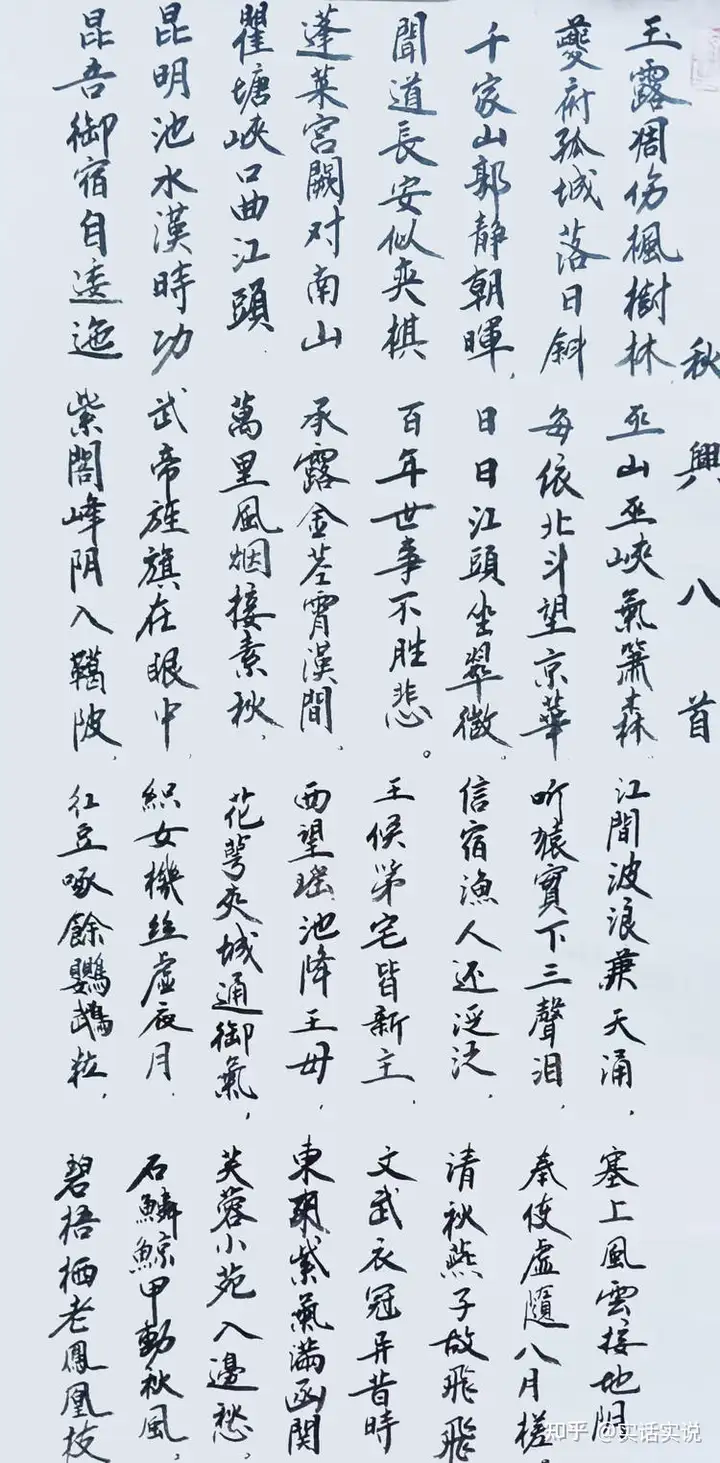 秋興八首
玉露凋伤楓樹林 巫山巫峽氣簫森 江間波浪兼天涌, 塞上風雲接地阴
夔府孤城落日斜 每依北斗望京華 听猿實下三聲泪, 奉使虚隨八月槎。
千家山郭靜朝暉, 日日江頭坐翠微, 信宿漁人还泛泛, 清秋燕子故飛飛
聞道長安似奕棋 百年世事不胜悲。 王侯第宅皆新主, 文武衣冠异昔時
蓬莱宫闕对南山 承露金茎霄漢間, 西望瑶池降王母, 東來紫氣滿函関
瞿塘峽口曲江頭 萬里風烟接素秋, 花萼夾城通御氣, 芙蓉小苑入邊愁,
昆明池水漢時功 武帝旌旗在眼中 織女機丝虚夜月 石鱗鯨甲動秋風,
昆吾御宿自逶迤 紫閣峰阴入陂, 红豆啄餘鸚鵡粒, 碧梧栖老鳳凰枝
知乎 @实话实说